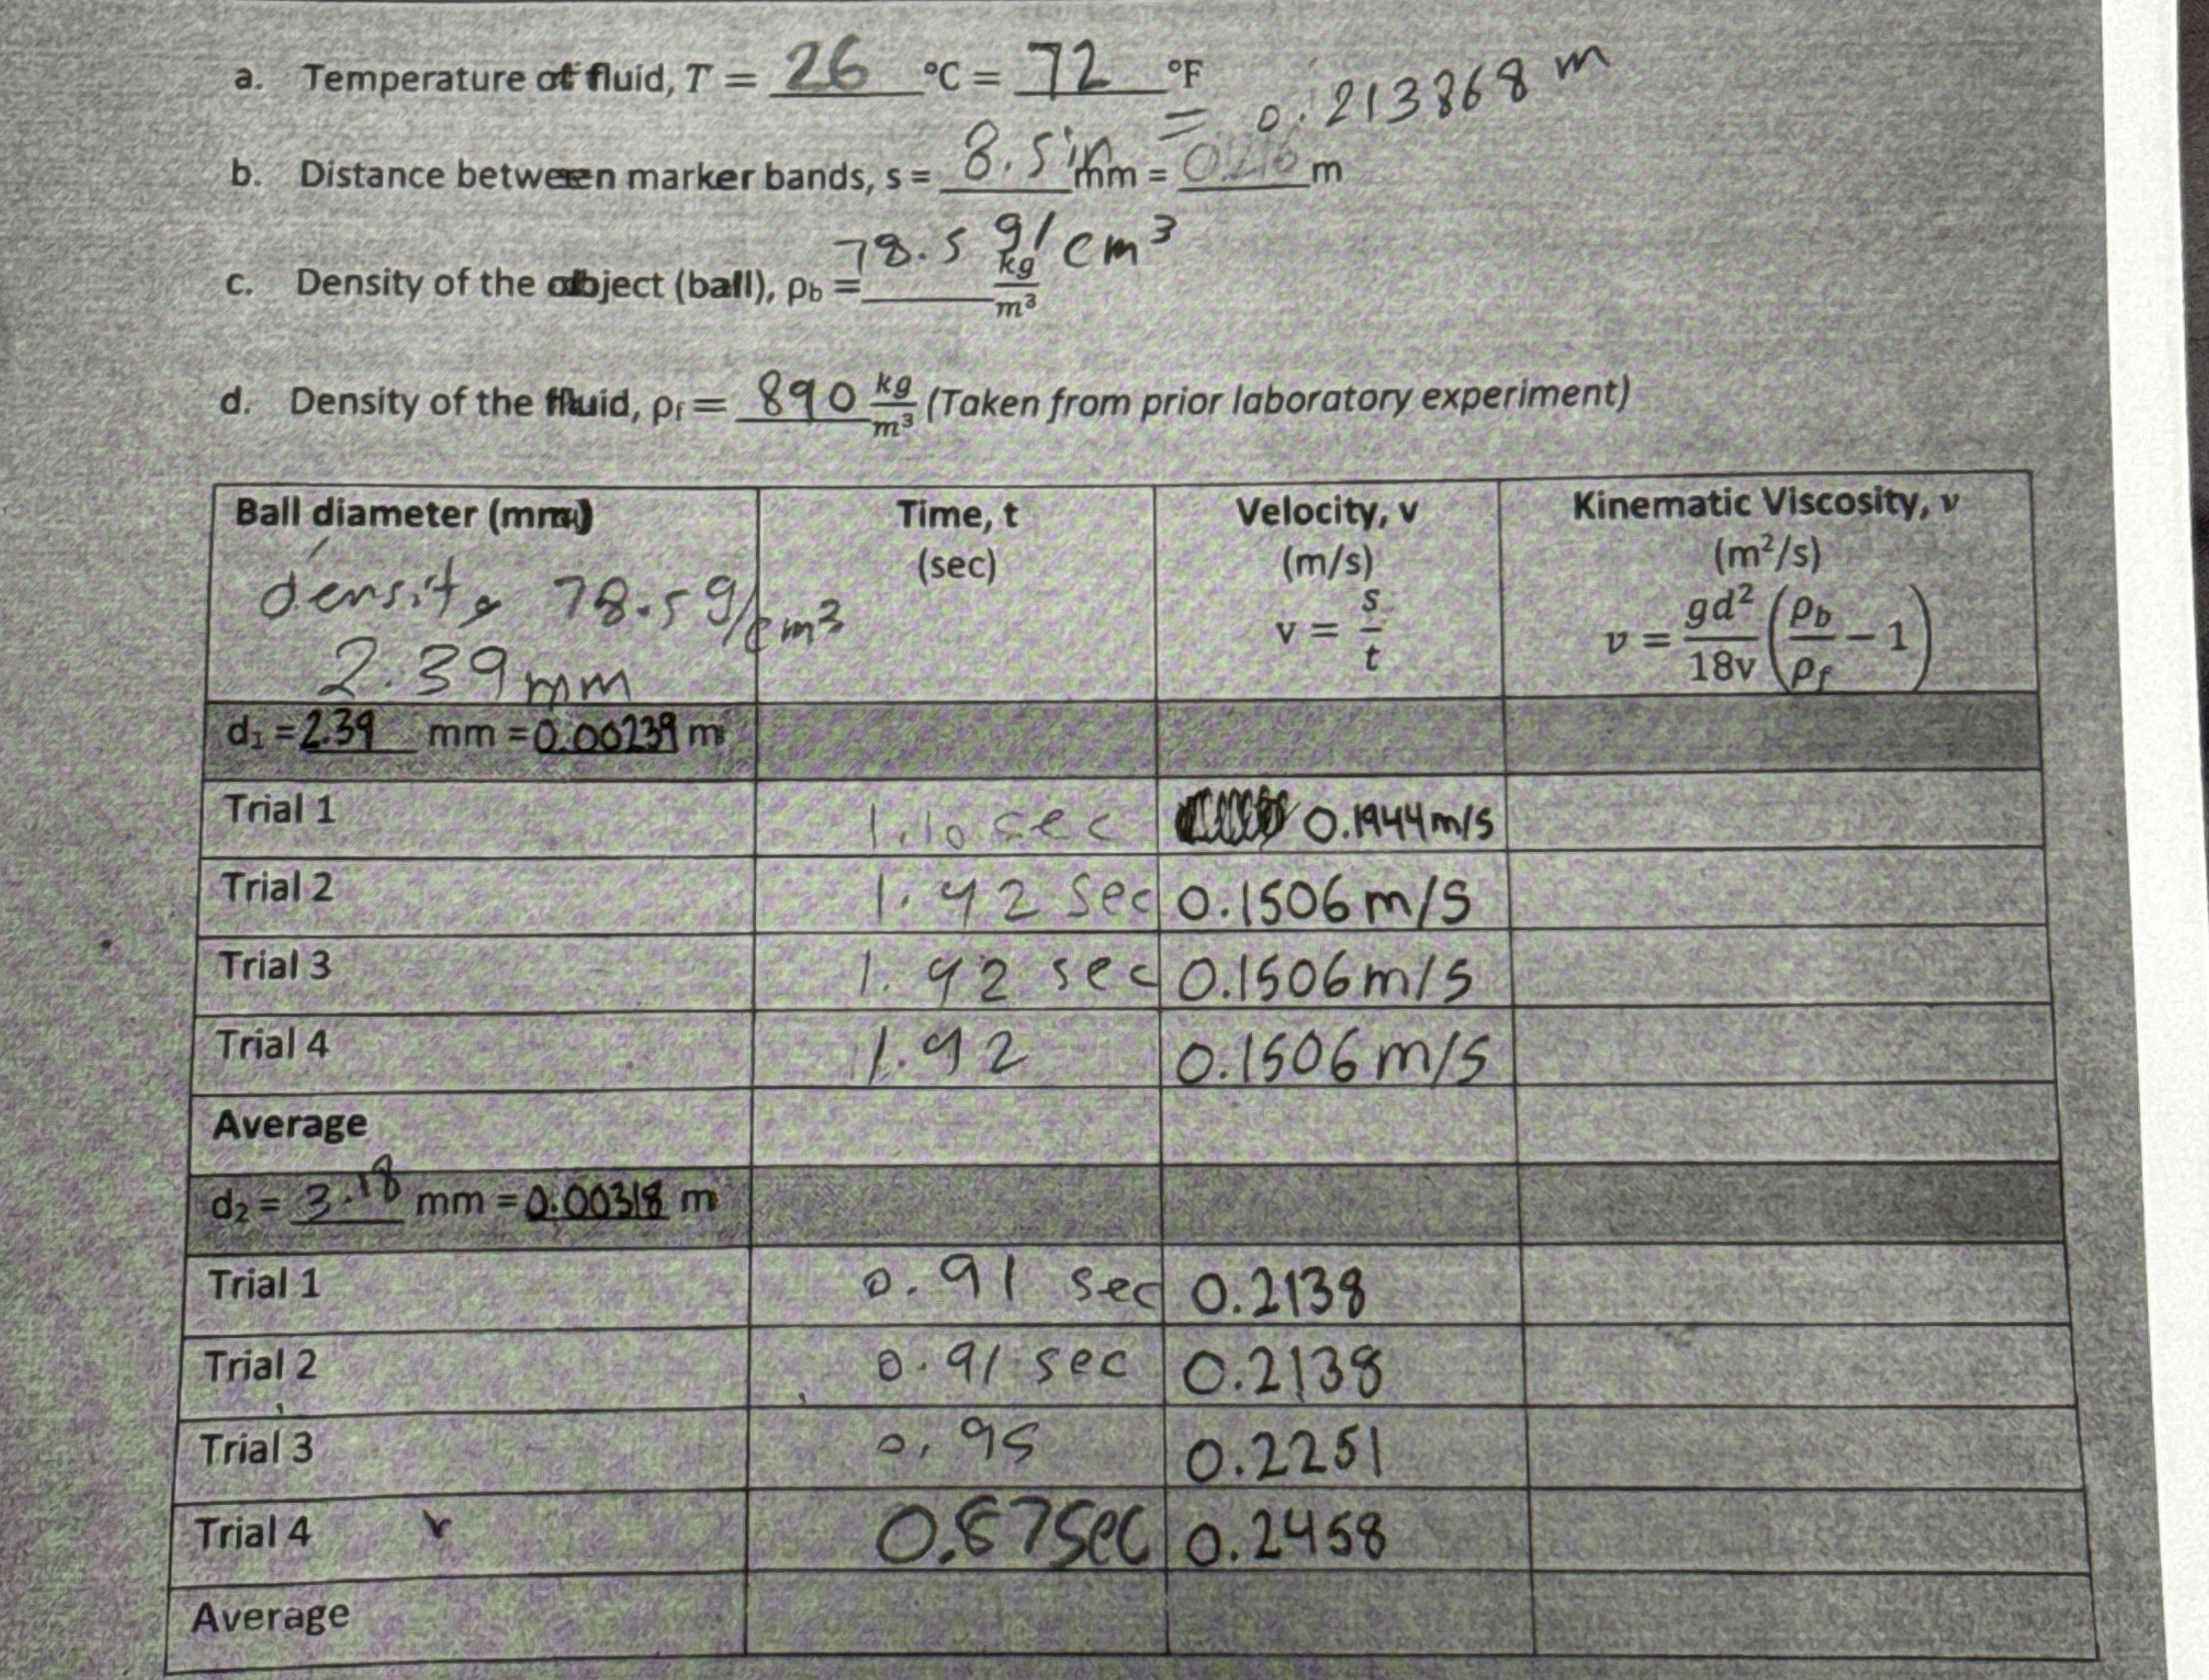 a. Temperature of fluid, T = 26 °C = 72 °F
= 0.213868 m
b. Distance between marker bands, s = 8.5 in mm = 0.216 m
78.5 g/cm³
c. Density of the object (ball), ρb = ____ kg/m³
d. Density of the fluid, ρf = 890 kg/m³ (Taken from prior laboratory experiment)
Ball diameter (mm) Time, t (sec) Velocity, v (m/s) v = s/t Kinematic Viscosity, ν (m²/s) ν = gd²/18v (ρb/ρf − 1)
density 78.5 g/cm³
2.39 mm
d₁ = 2.39 mm = 0.00239 m
Trial 1 1.10 sec 0.1944 m/s
Trial 2 1.42 sec 0.1506 m/s
Trial 3 1.42 sec 0.1506 m/s
Trial 4 1.42 0.1506 m/s
Average
d₂ = 3.18 mm = 0.00318 m
Trial 1 0.91 sec 0.2138
Trial 2 0.91 sec 0.2138
Trial 3 0.95 0.2251
Trial 4 0.87 sec 0.2458
Average